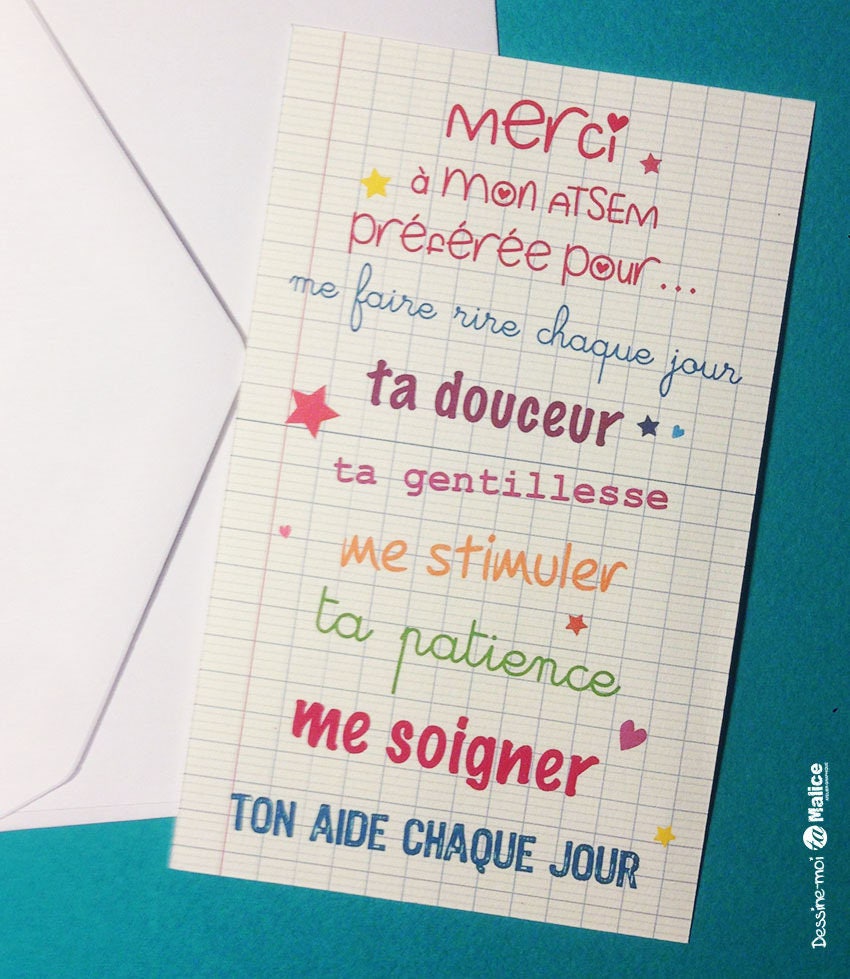 merci
à mon ATSEM
préférée pour...
me faire rire chaque jour
ta douceur
ta gentillesse
me stimuler
ta patience
me soigner
TON AIDE CHAQUE JOUR
Dessine-moi la Malice
ATELIER GRAPHIQUE